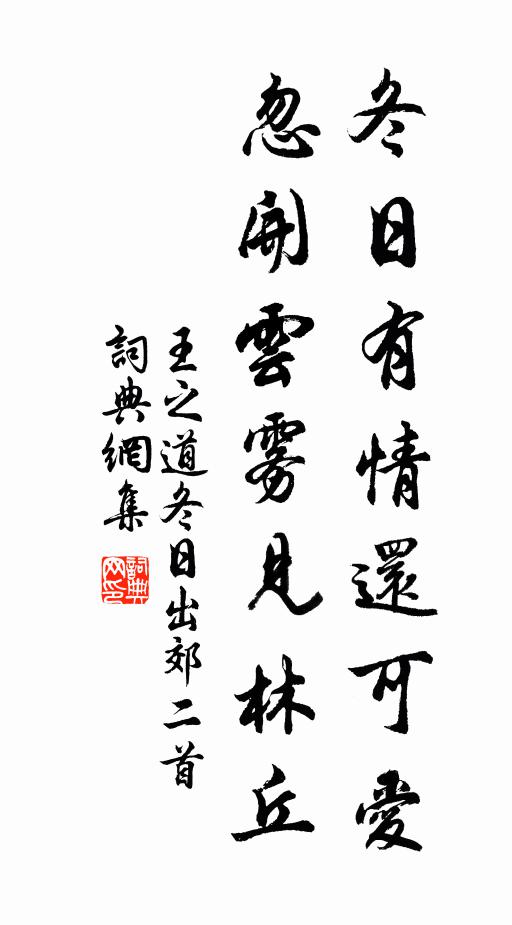 冬日有情還可愛
忽開雲霧見林丘
王之道冬日出郊二首
詞典網集
詞典網印